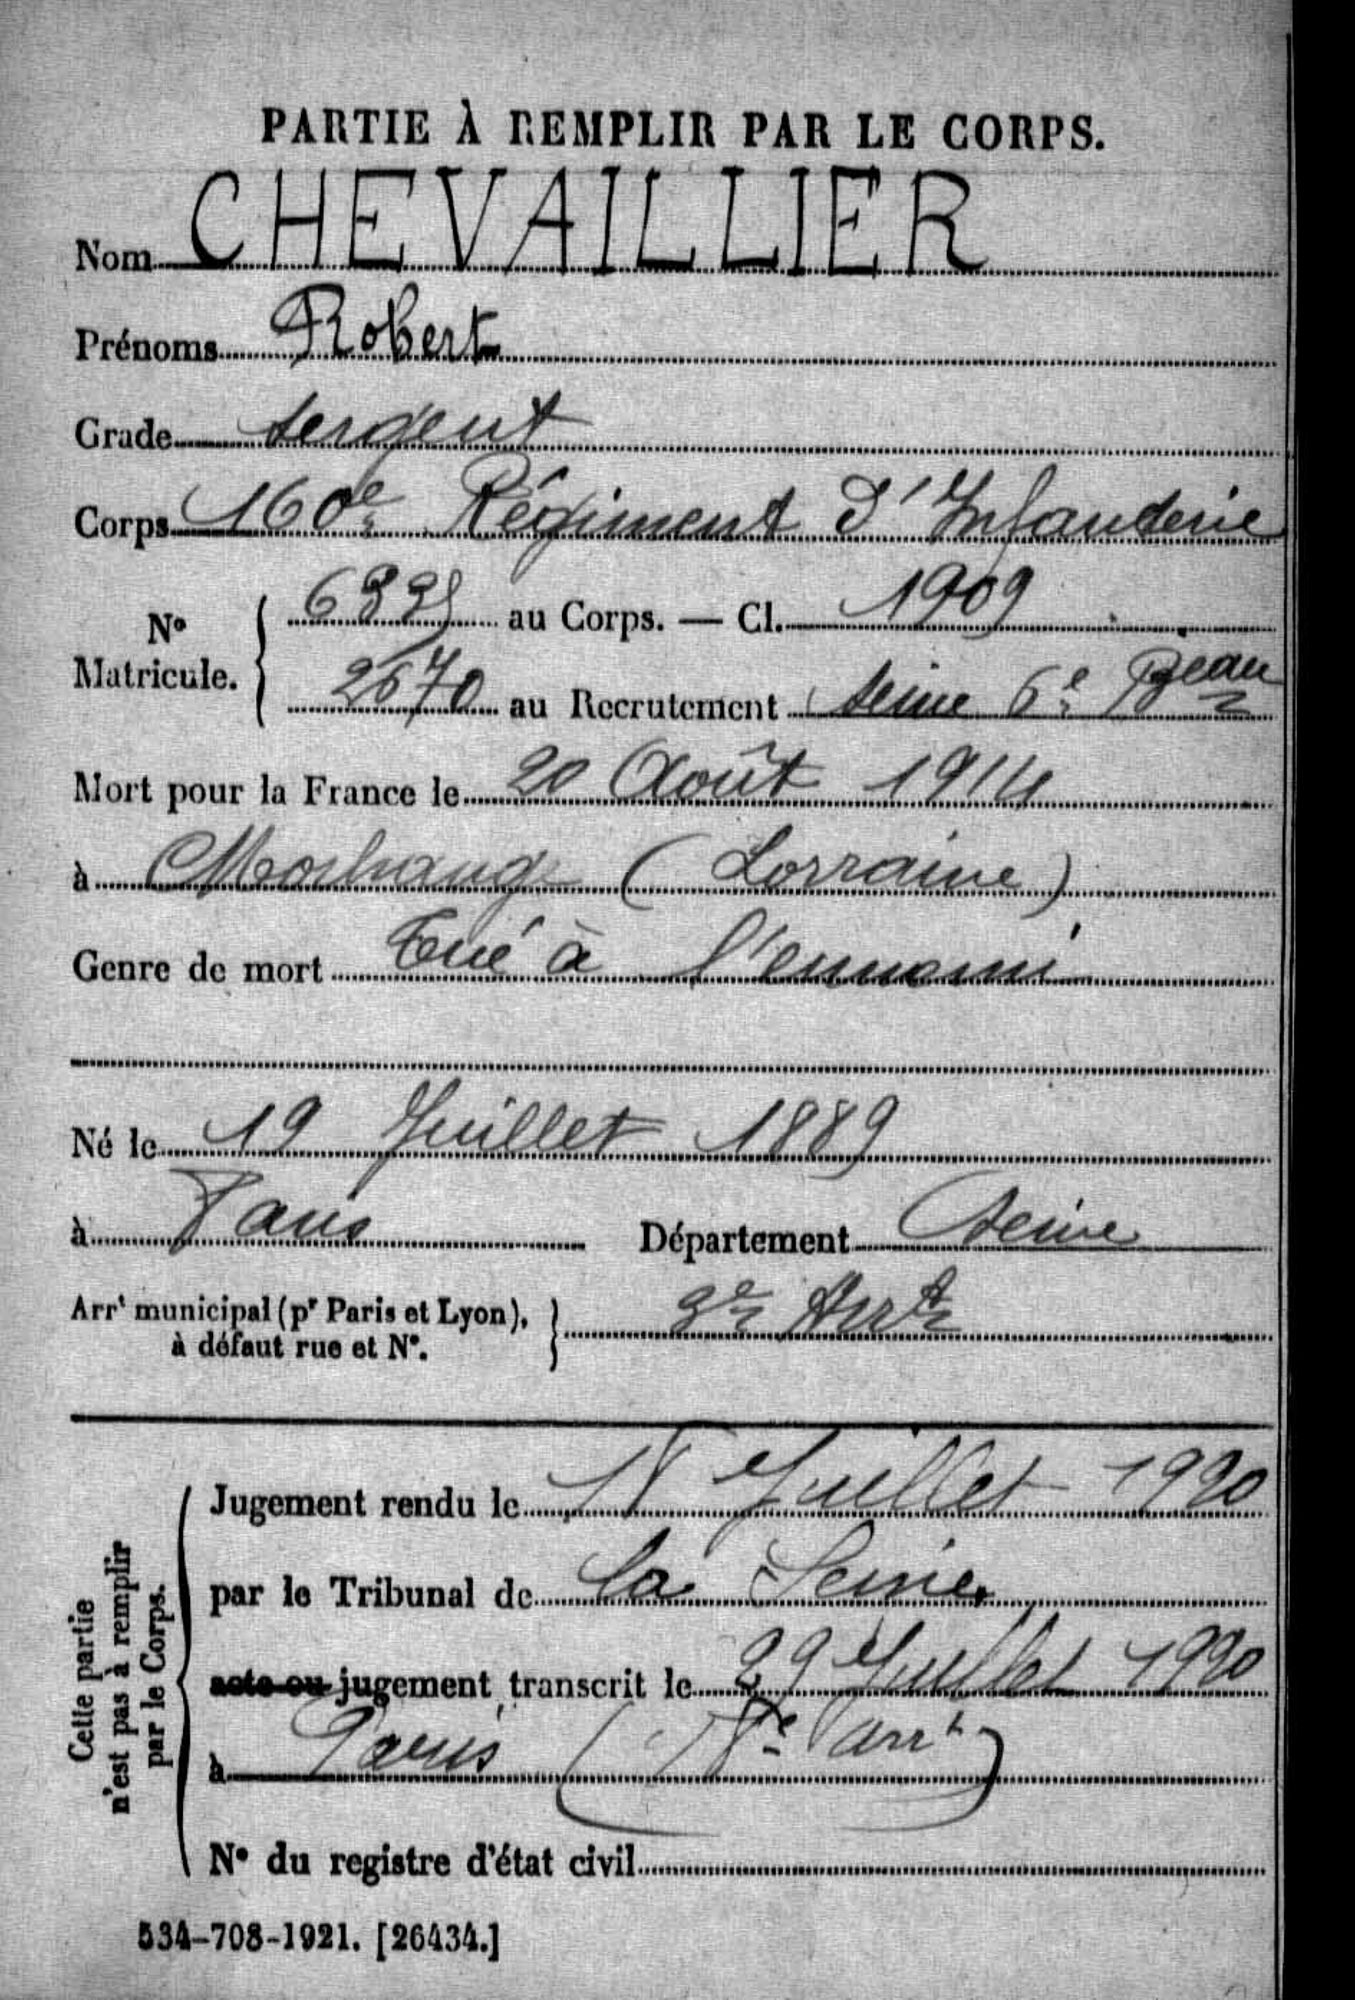 PARTIE À REMPLIR PAR LE CORPS.
Nom CHEVAILLIER
Prénoms Robert
Grade Sergent
Corps 160e Régiment d'Infanterie
N° Matricule. au Corps. — Cl. 1909
2670 au Recrutement Seine 6e Beau
Mort pour la France le 20 Août 1914
à Morhange (Lorraine)
Genre de mort Tué à l'ennemi
Né le 19 Juillet 1889
à Paris Département Seine
Arrt municipal (pr Paris et Lyon), à défaut rue et N°.
Cette partie n'est pas à remplir par le Corps.
Jugement rendu le Juillet 1920
par le Tribunal de la Seine
acte ou jugement transcrit le 29 Juillet 1920
à Paris (18e arrt)
N° du registre d'état civil
534-708-1921. [26434.]